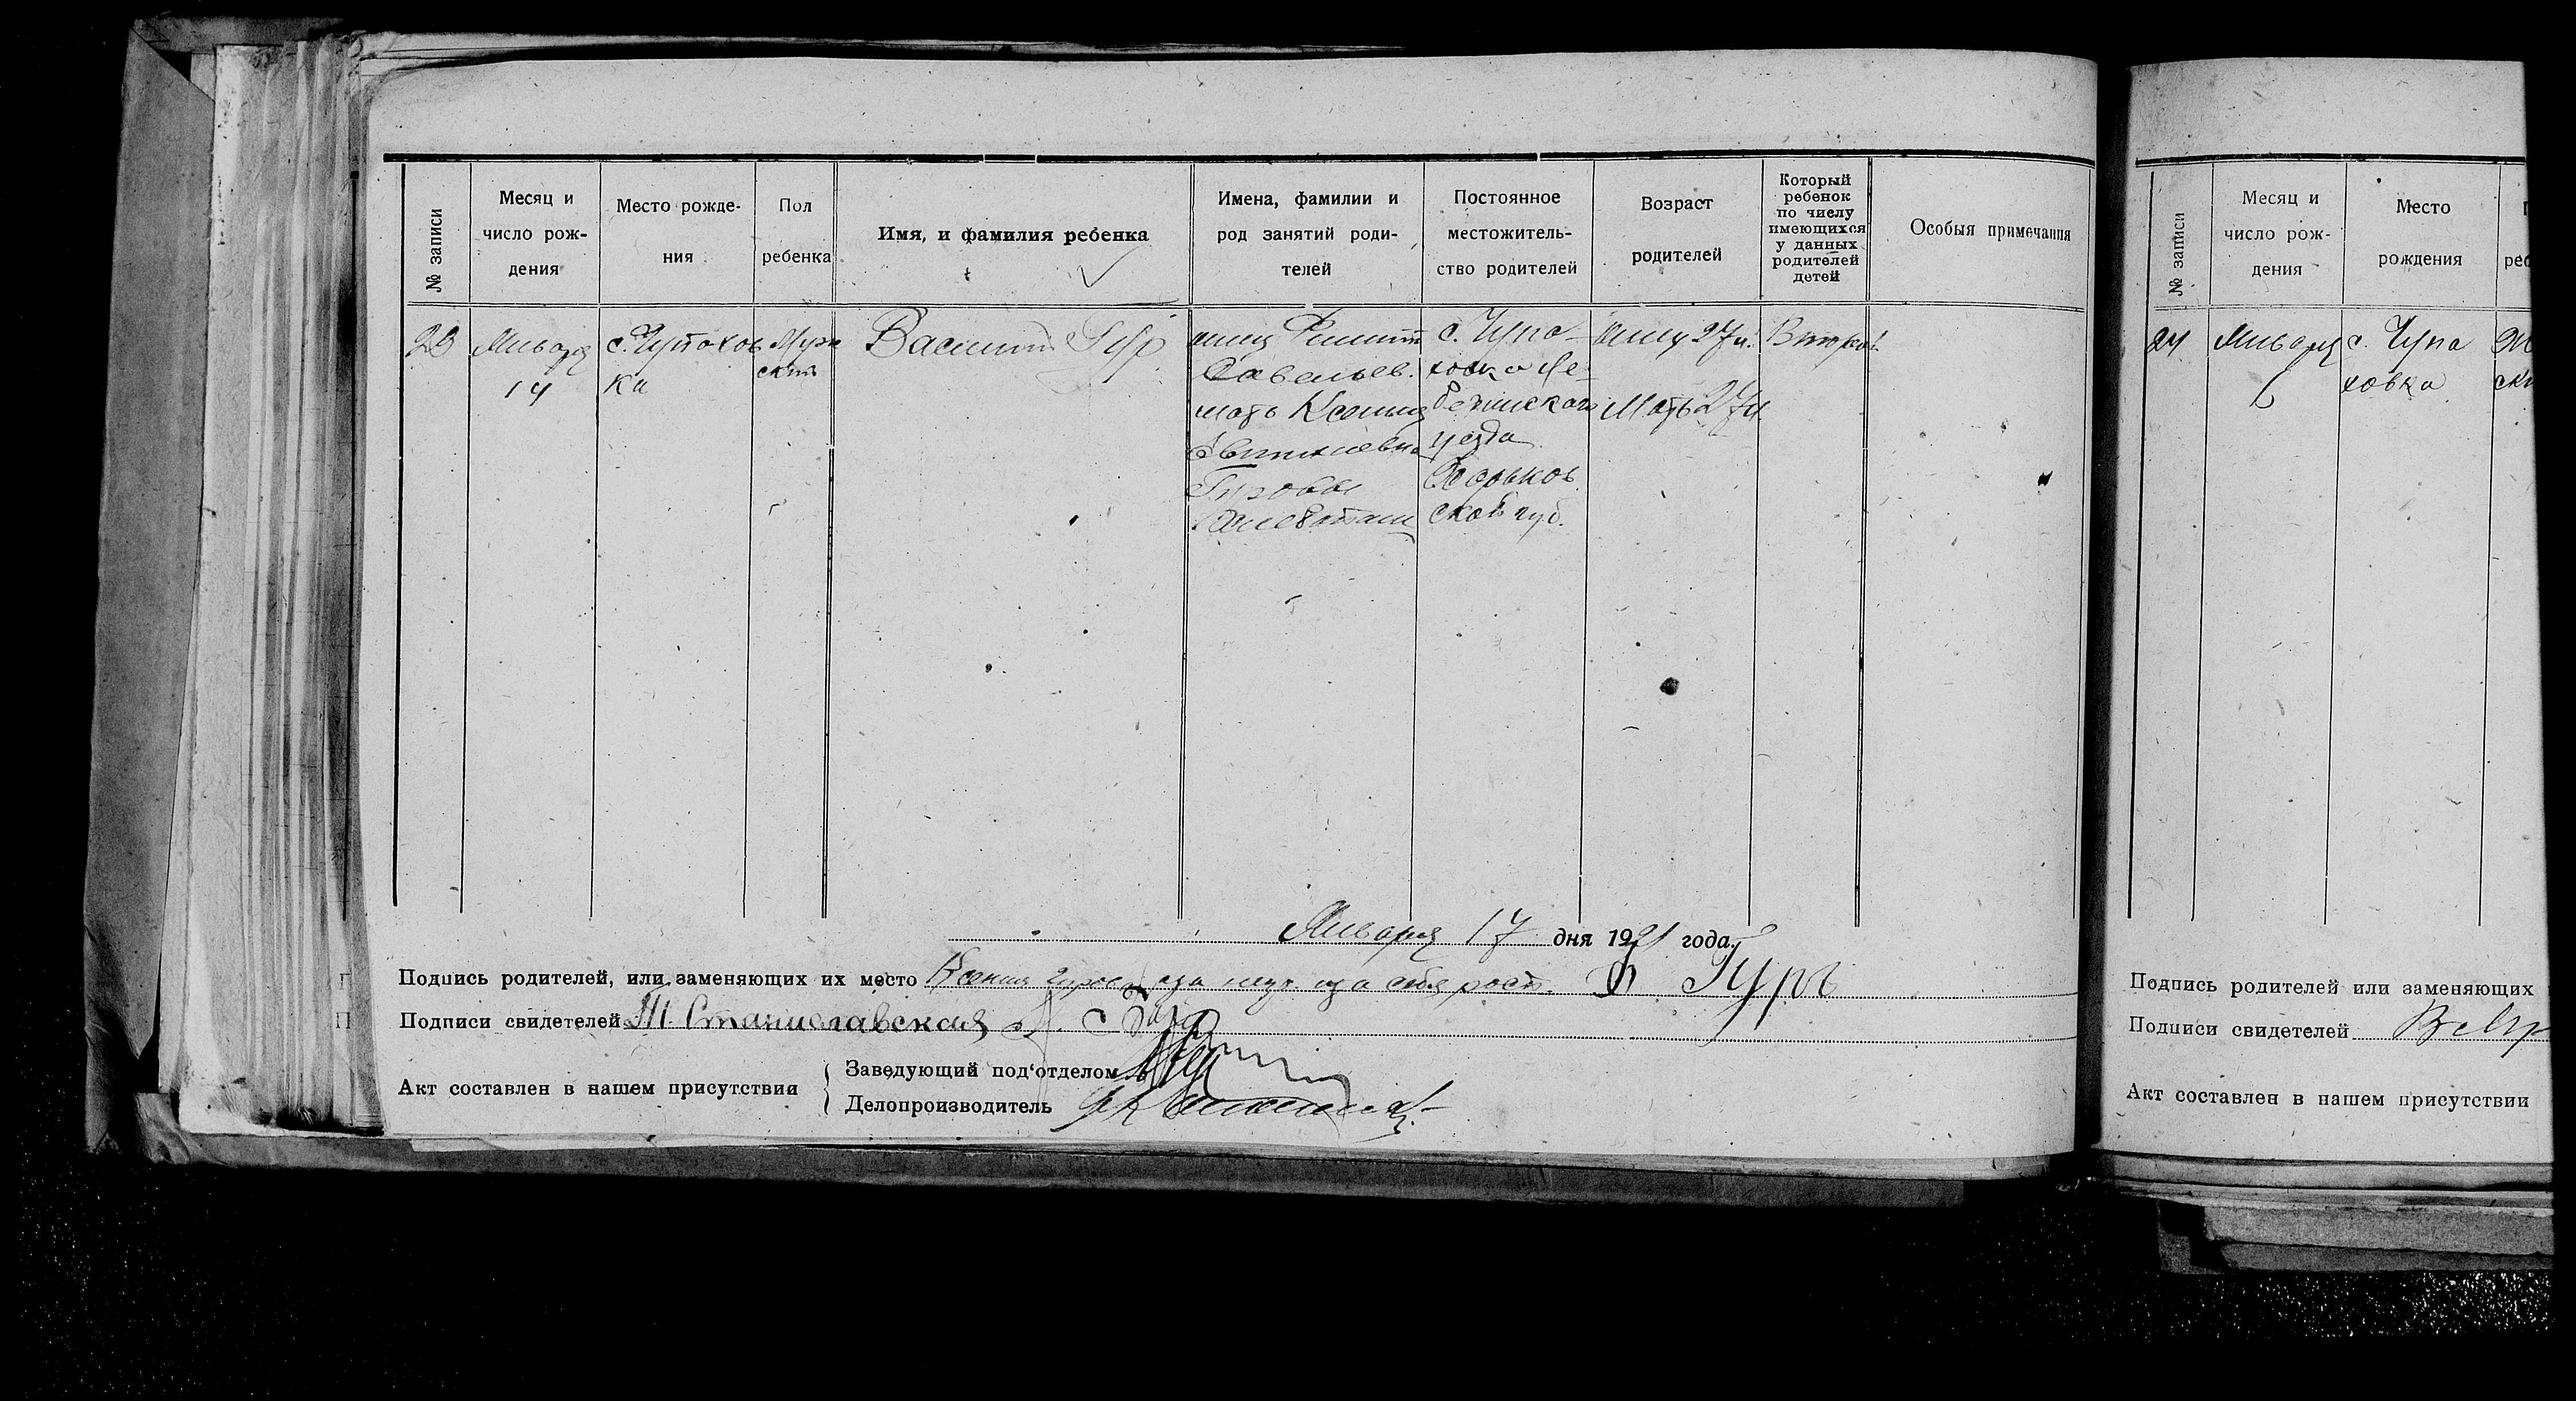 № записи
Месяц и
число рож-
дения
Место рожде-
ния
Пол
ребенка
Имя, и фамилия ребенка
Имена, фамилии и
род занятий роди-
телей
Постоянное
местожитель-
ство родителей
Возраст
родителей
Который
ребенок
по числу
имеющихся
у данных
родителей
детей
Особыя примечания
23
Января
14
с. Чупахов
ка
Муж
ский
Василий Гур
отец Филипп
Савельев.
мать Ксения
Гуровы
с. Чупа-
ховка Ле-
бединского
уезда
Харьков
ской губ.
отцу 27 л.
Мать 27 л.
Второй
Января 17 дня 1921 года.
Подпись родителей, или заменяющих их место Ксения Гурова Гуръ
Подписи свидетелей Станиславская
Акт составлен в нашем присутствии
Заведующий под‘отделом
Делопроизводитель
№ записи
Месяц и
число рож-
дения
Место
рождения
реб
24
Января
6
с. Чупа
ховка
Подпись родителей или заменяющих
Подписи свидетелей
Акт составлен в нашем присутствии